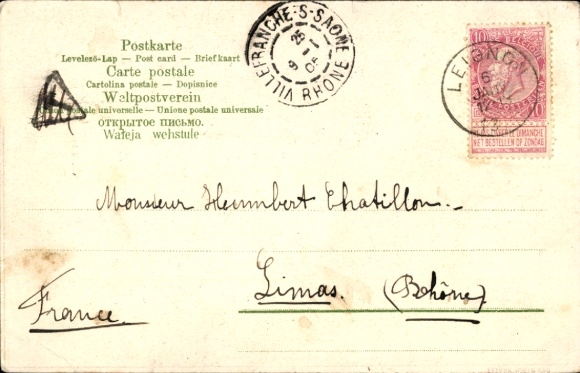 Postkarte
Levelező-Lap — Post card — Briefkaart
Carte postale
Cartolina postale — Dopisnice
Weltpostverein
postale universelle — Unione postale universale
ОТКРЫТОЕ ПИСЬМО.
VILLEFRANCHE-S-SAONE
25
RHONE
10
10
LEIGNON
NE PAS LIVRER LE DIMANCHE
NIET BESTELLEN OP ZONDAG
Monsieur Humbert Chatillon.-
Limas. (Rhône)
France.